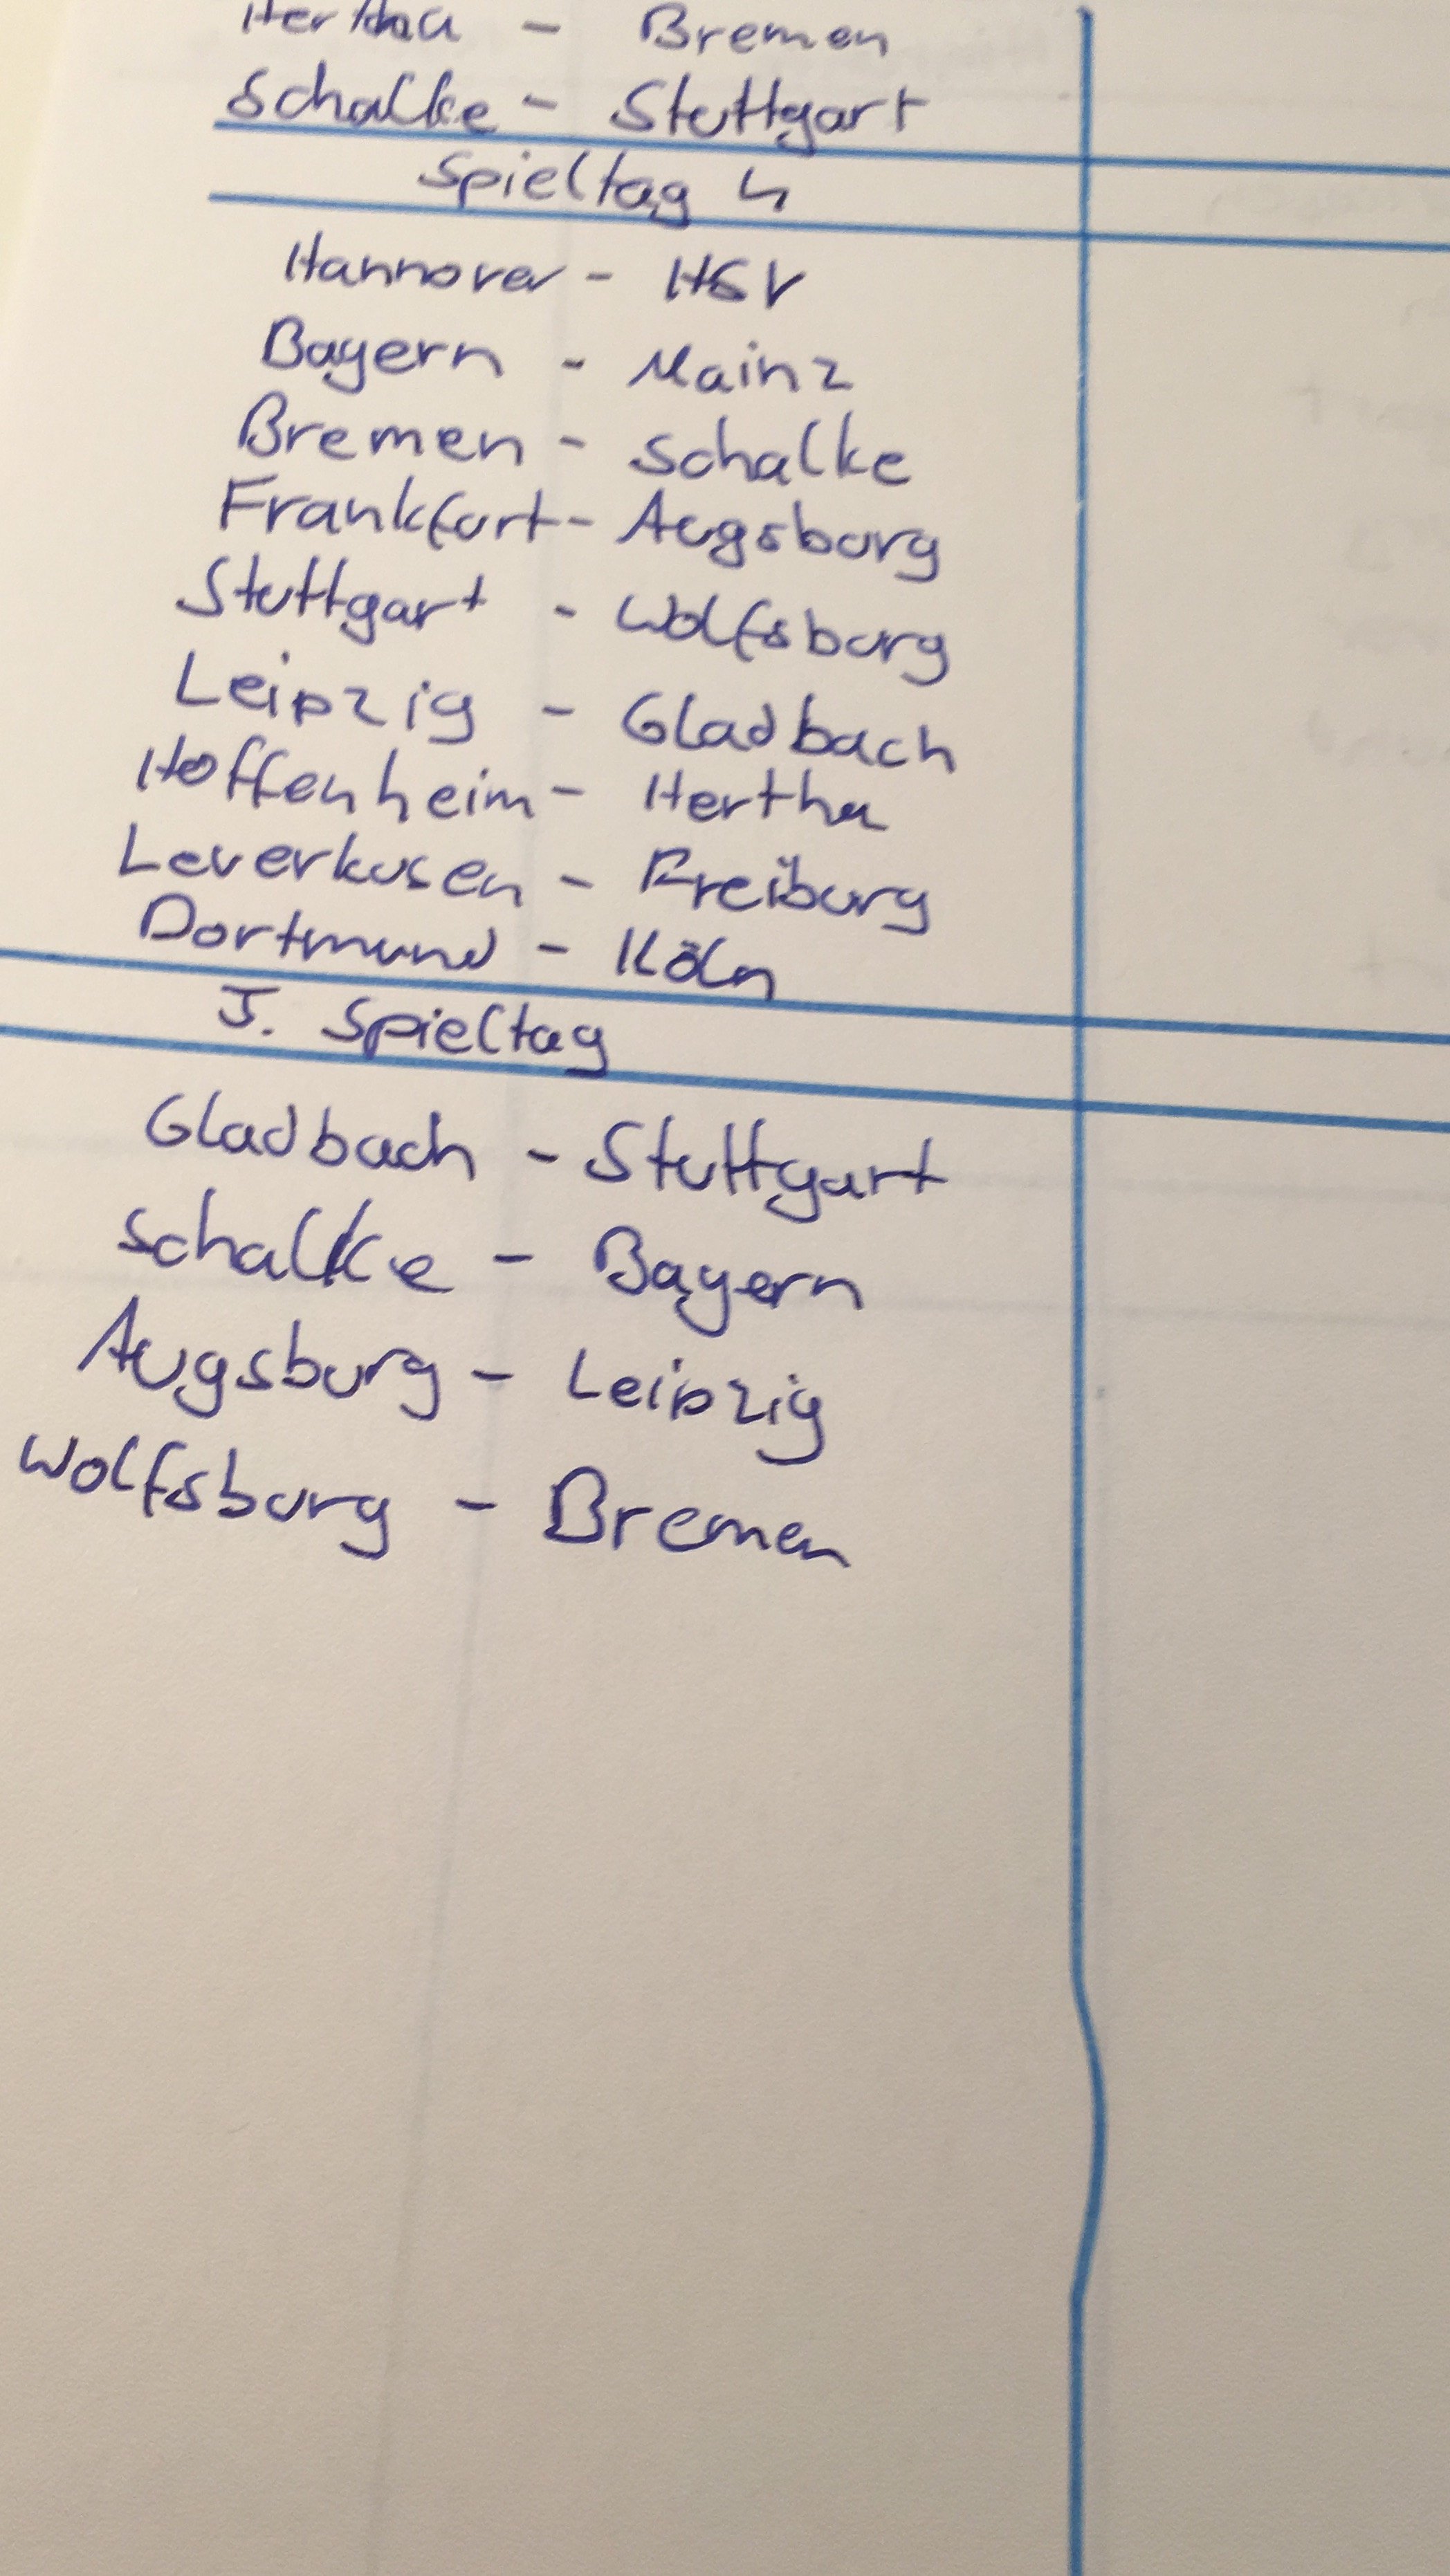 Hertha - Bremen
Schalke - Stuttgart
Spieltag 4
Hannover - HSV
Bayern - Mainz
Bremen - Schalke
Frankfurt - Augsburg
Stuttgart - Wolfsburg
Leipzig - Gladbach
Hoffenheim - Hertha
Leverkusen - Freiburg
Dortmund - Köln
5. Spieltag
Gladbach - Stuttgart
Schalke - Bayern
Augsburg - Leipzig
Wolfsburg - Bremen